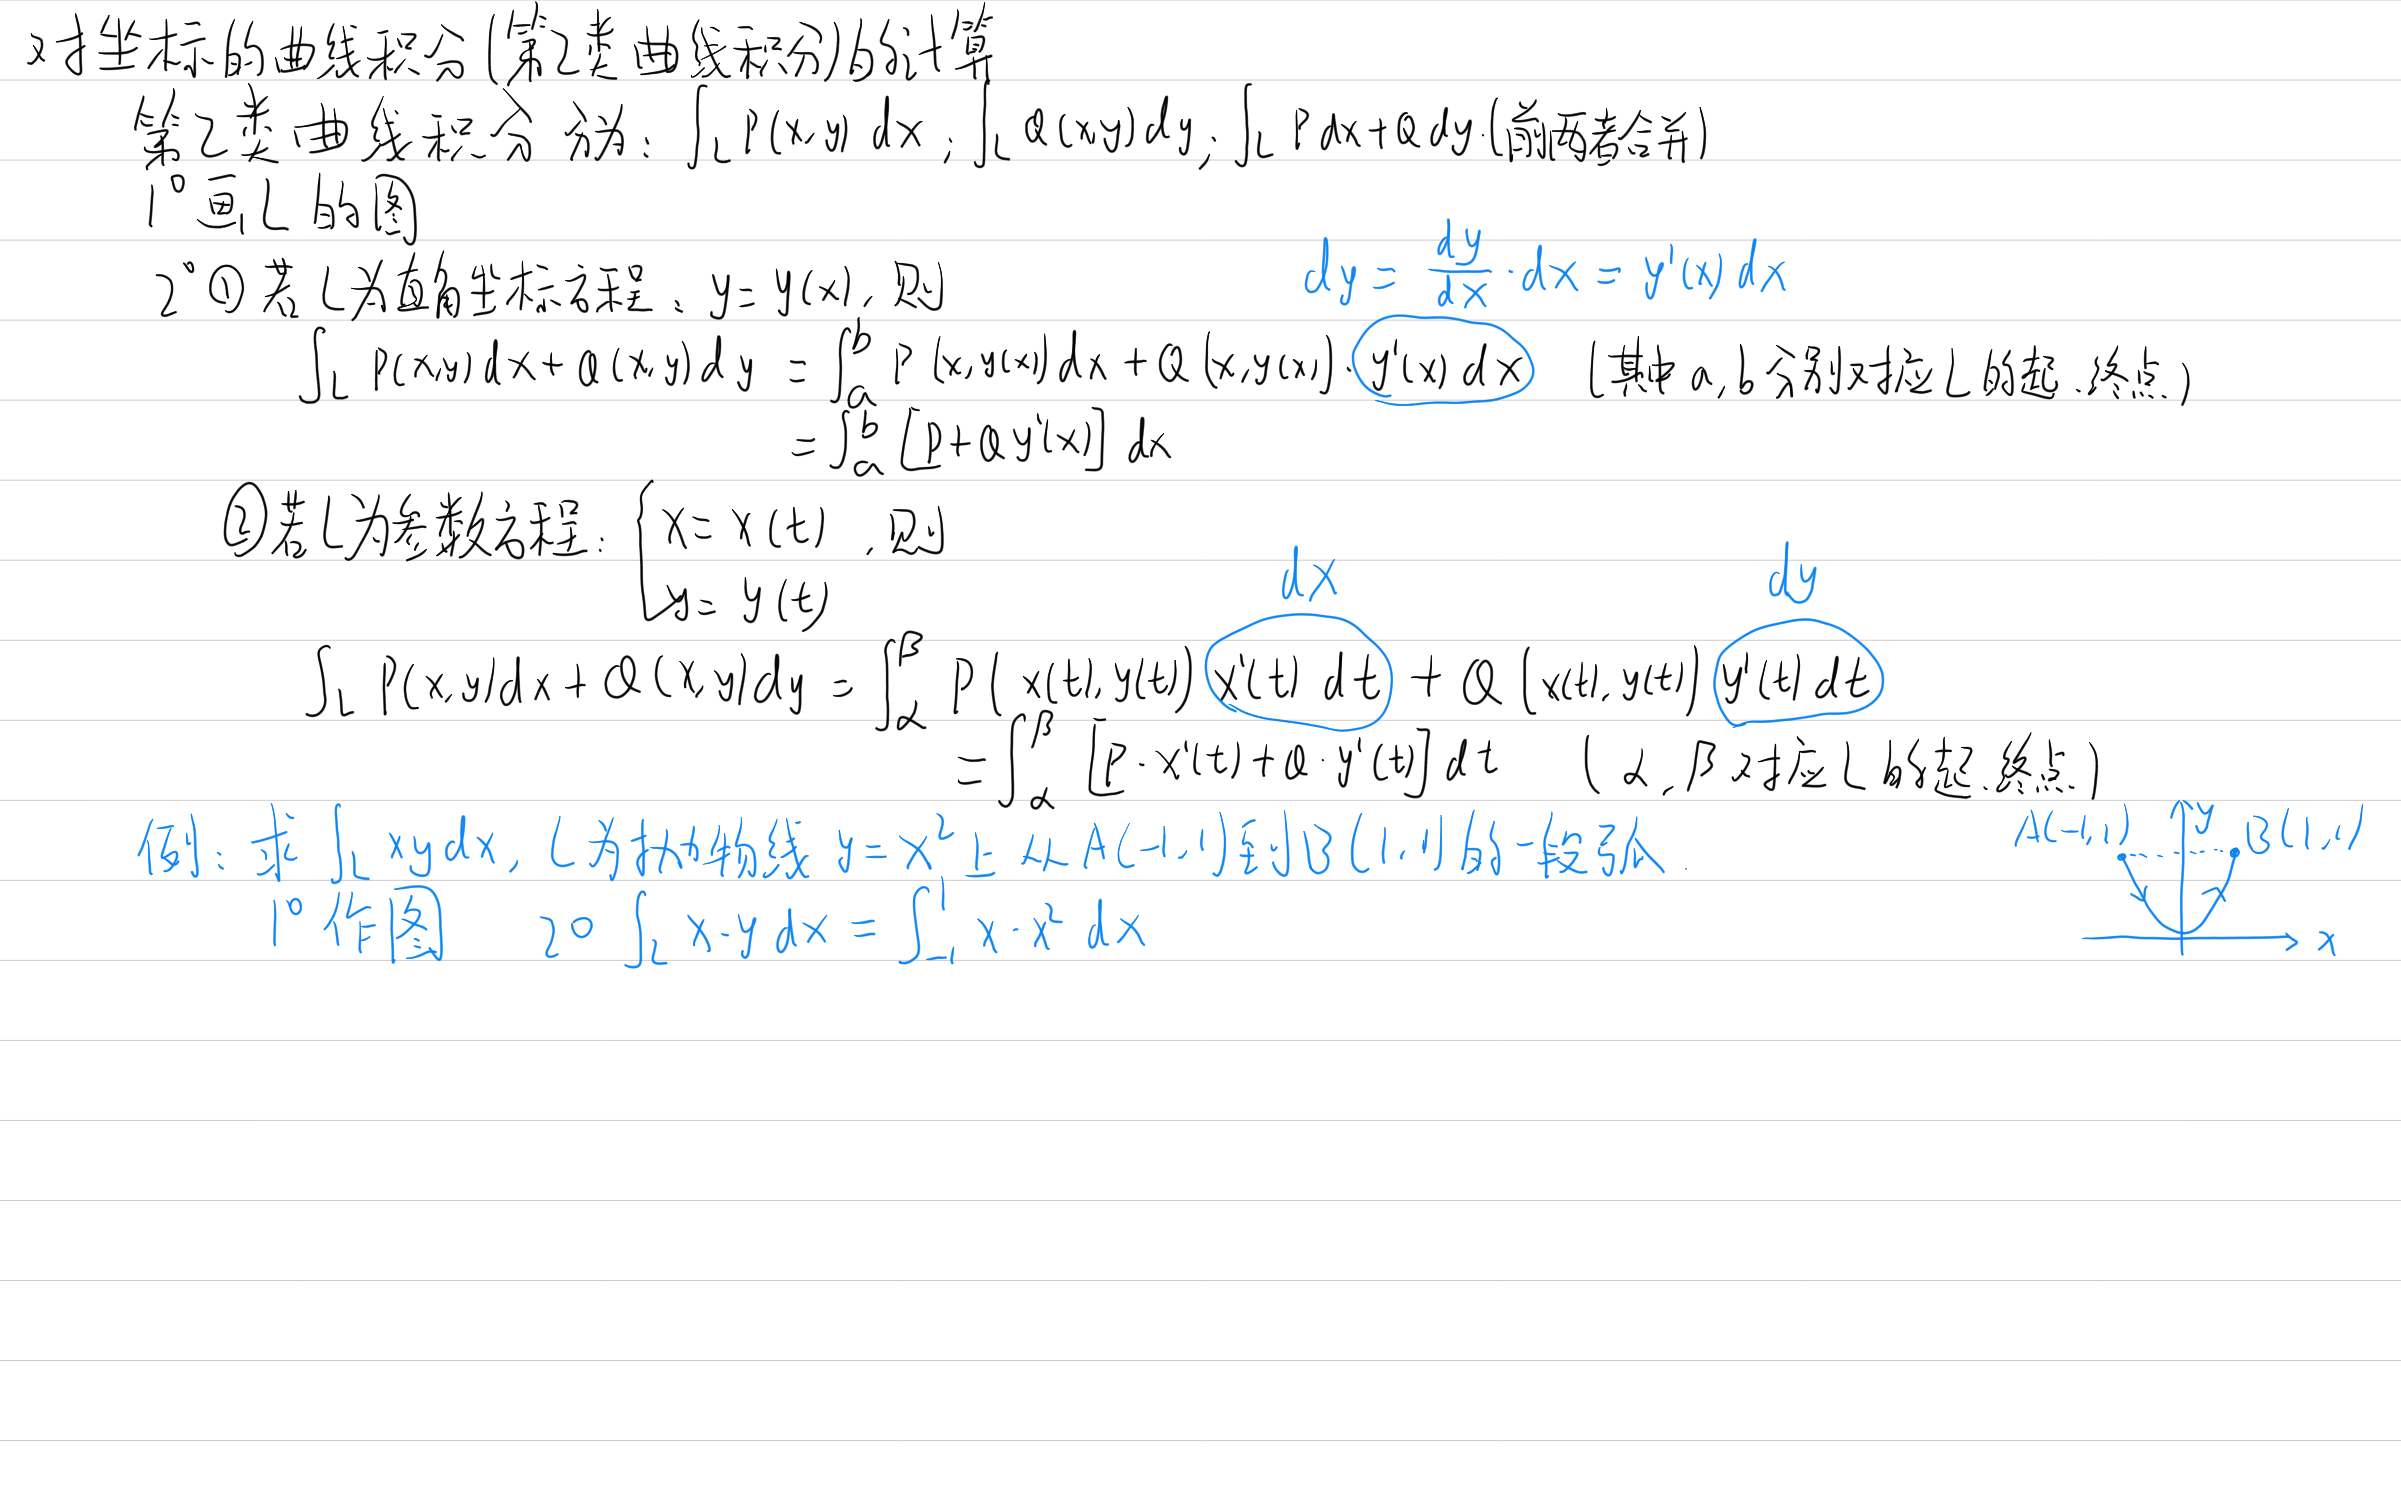 对坐标的曲线积分(第2类曲线积分)的计算
第2类曲线积分分为: ∫_L P(x,y) dx; ∫_L Q(x,y) dy; ∫_L P dx+Q dy.(前两者合并)
1° 画L的图
2° ①若L为直角坐标方程: y=y(x), 则
dy = dy/dx · dx = y'(x) dx
∫_L P(x,y)dx+Q(x,y)dy = ∫_a^b P(x,y(x))dx + Q(x,y(x))·y'(x) dx (其中a,b分别对应L的起.终点)
= ∫_a^b [P+Qy'(x)] dx
②若L为参数方程: { x=x(t) ,则
y=y(t)
dx dy
∫_L P(x,y)dx+Q(x,y)dy = ∫_α^β P(x(t),y(t)) x'(t) dt + Q(x(t),y(t)) y'(t) dt
= ∫_α^β [P·x'(t)+Q·y'(t)] dt (α,β对应L的起.终点)
例: 求∫_L xy dx, L为抛物线 y=x² 上从A(-1,1)到B(1,1)的一段弧.
A(-1,1) y B(1,1)
1° 作图 2° ∫_L x·y dx = ∫_-1^1 x·x² dx
x